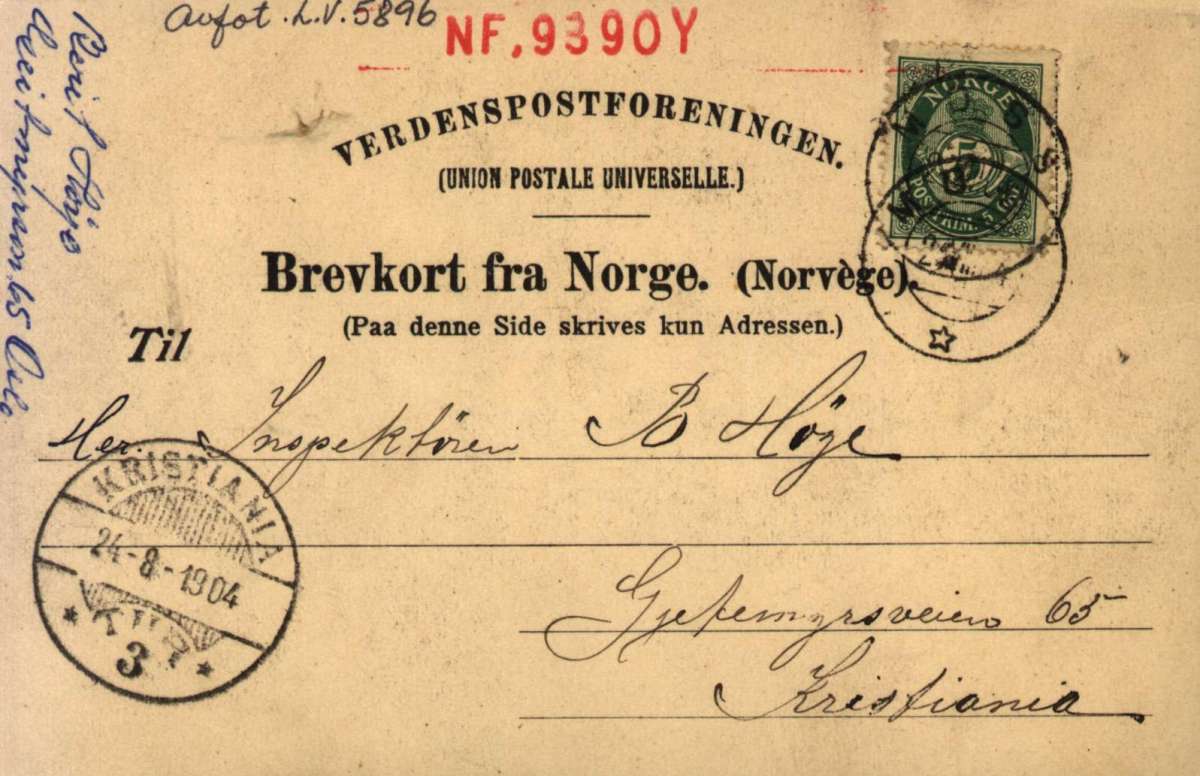 Avfot. L.V. 5896
NF.9390Y
VERDENSPOSTFORENINGEN.
(UNION POSTALE UNIVERSELLE.)
Brevkort fra Norge. (Norvège).
(Paa denne Side skrives kun Adressen.)
Til
Her. Inspektören B Höye
Gjetemyrsveien 65
Kristiania
NORGE
5
POSTFRIM. 5 ØRE
KRISTIANIA
24-8-1904
TUR
3
Berit
65 Oslo